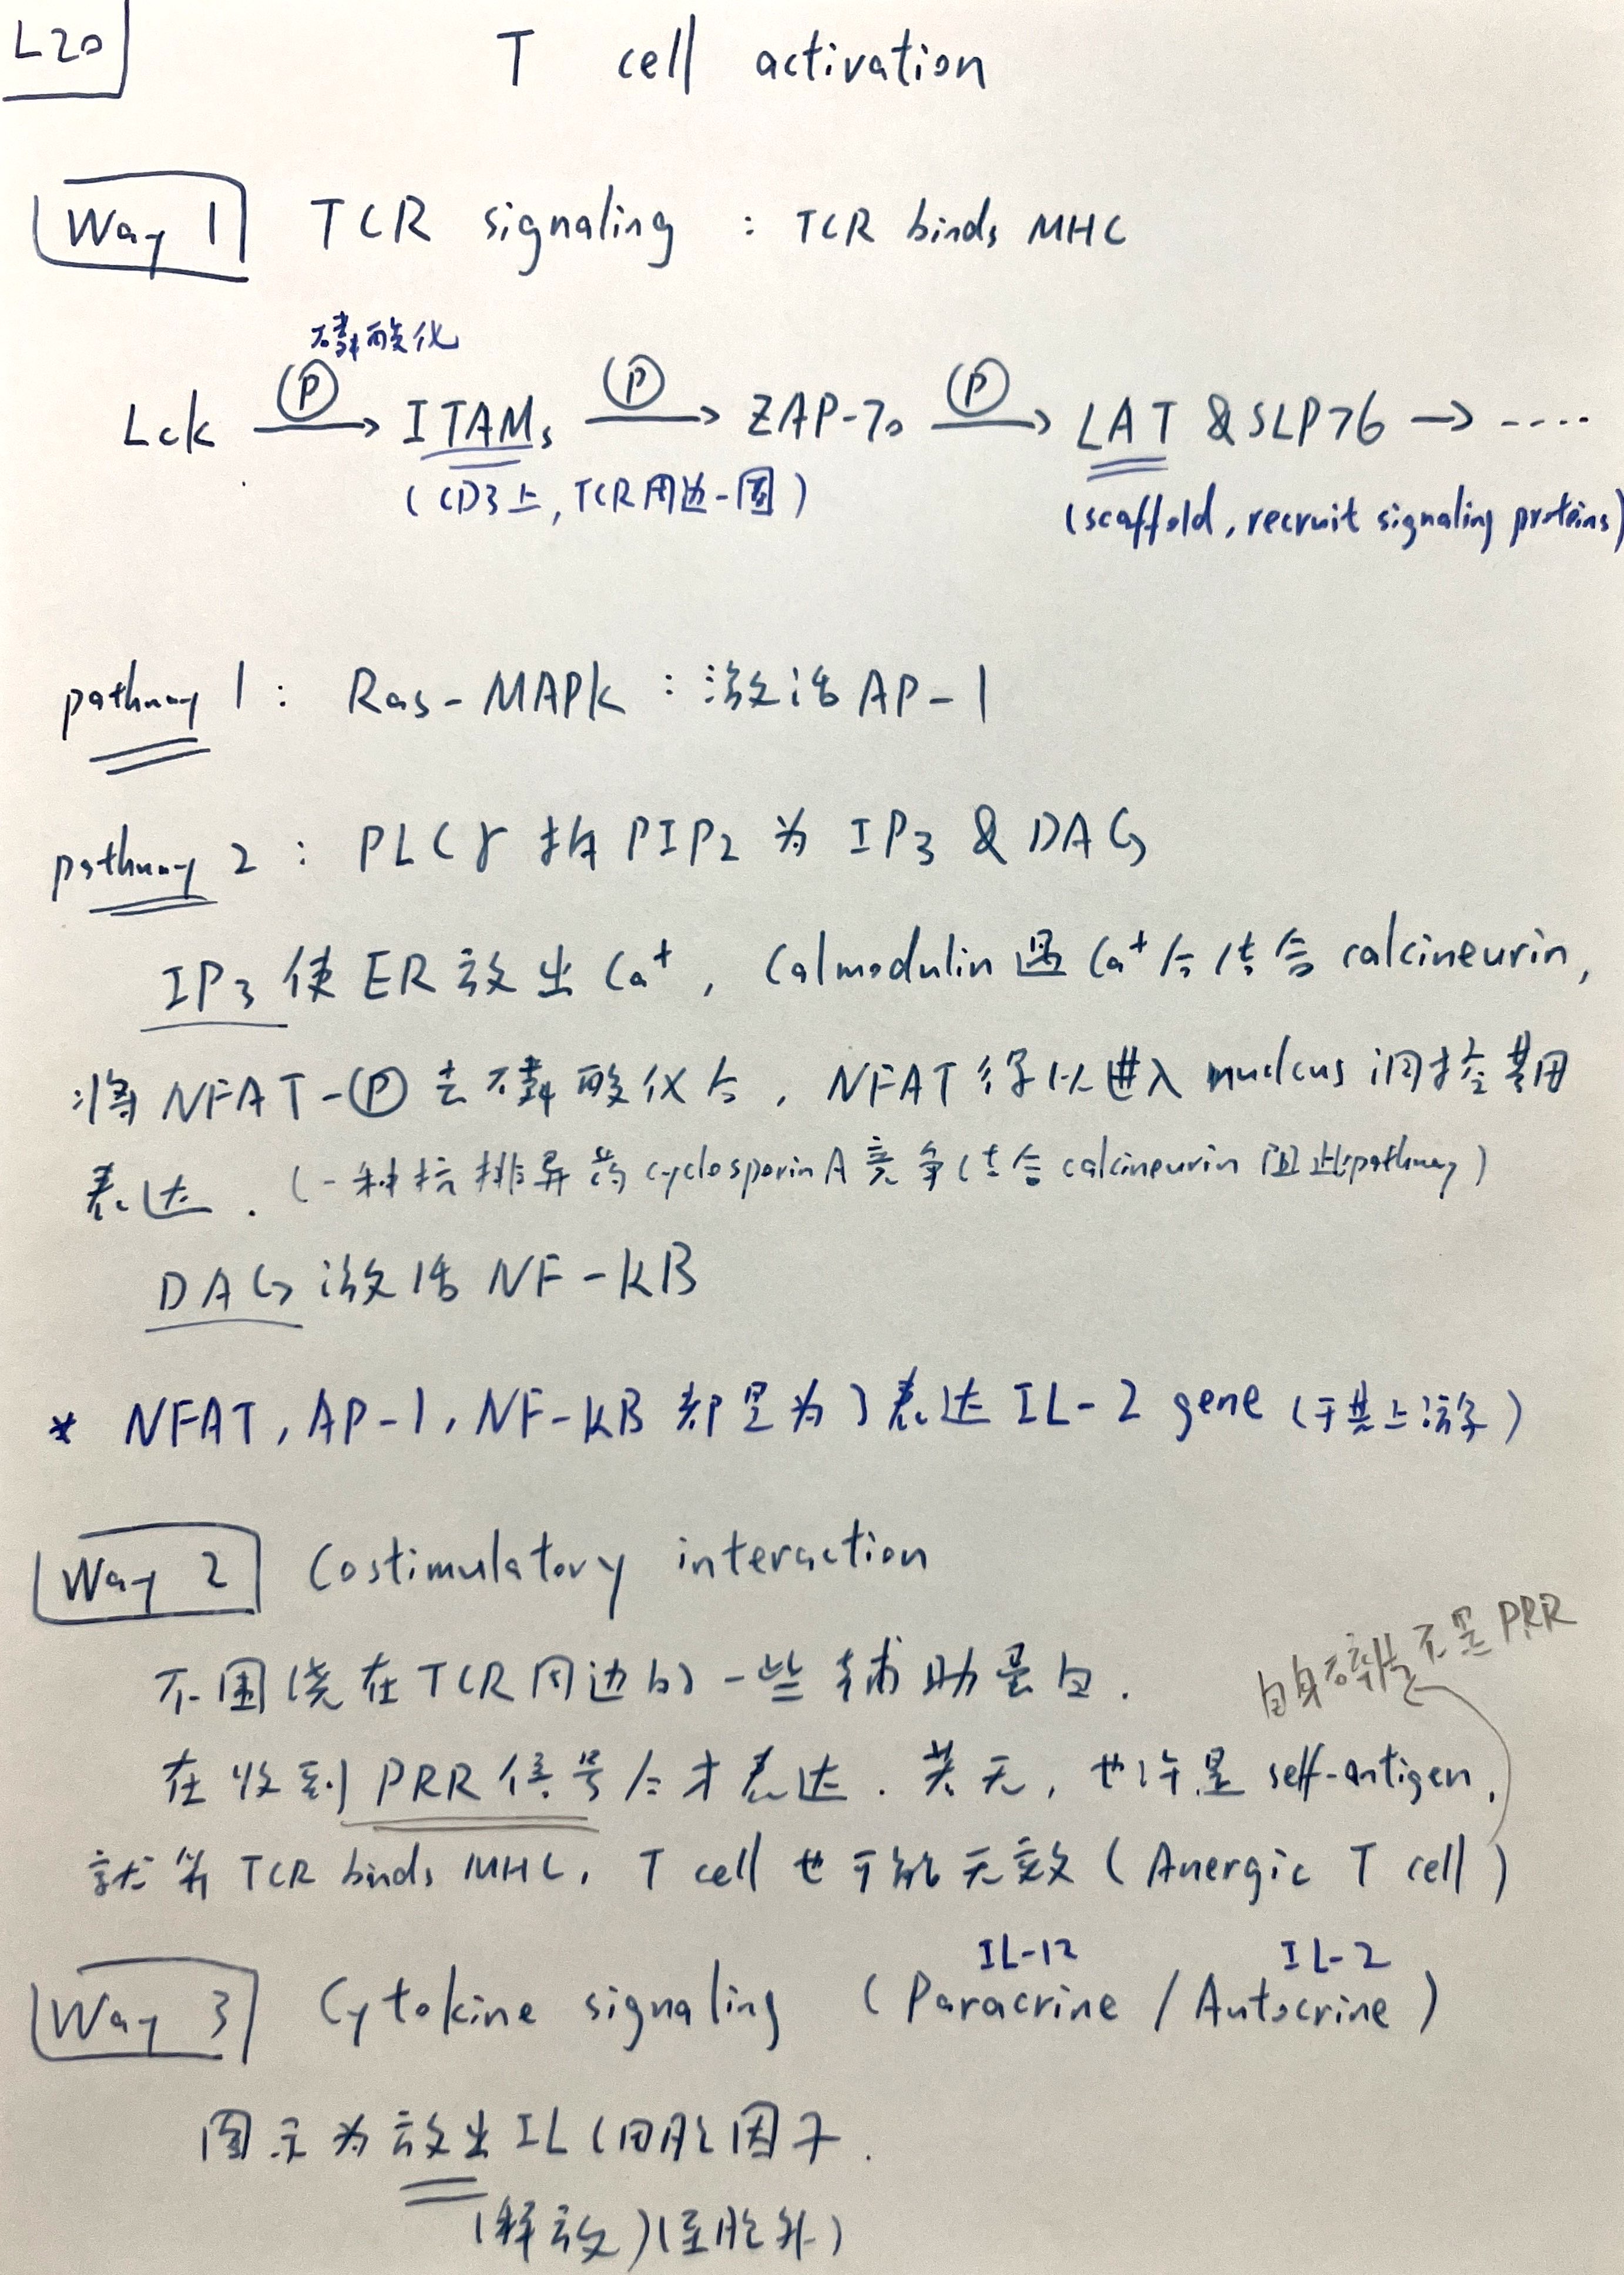 L20
T cell activation
Way 1 TCR signaling : TCR binds MHC
磷酸化
Lck Ⓟ→ ITAMs Ⓟ→ ZAP-70 Ⓟ→ LAT & SLP76 → ····
(CD3上, TCR周边一圈) (scaffold, recruit signaling proteins)
pathway 1 : Ras-MAPK : 激活 AP-1
pathway 2 : PLCγ 拆 PIP2 为 IP3 & DAG
IP3 使 ER 放出 Ca⁺, Calmodulin 遇 Ca⁺ 后结合 calcineurin,
将 NFAT-Ⓟ 去磷酸化后, NFAT 得以进入 nucleus 调控基因
表达. (一种抗排异药 cyclosporin A 竞争结合 calcineurin 阻此pathway)
DAG 激活 NF-kB
* NFAT, AP-1, NF-kB 都是为了表达 IL-2 gene (于其上游)
Way 2 Costimulatory interaction
自身碎片不是PRR
不围绕在TCR周边的一些辅助蛋白.
在收到 PRR 信号后才表达. 若无, 也许是 self-antigen.
就算 TCR binds MHC, T cell 也可能无效 (Anergic T cell)
IL-12 IL-2
Way 3 Cytokine signaling (Paracrine / Autocrine)
图示为放出IL细胞因子.
(释放)(至胞外)